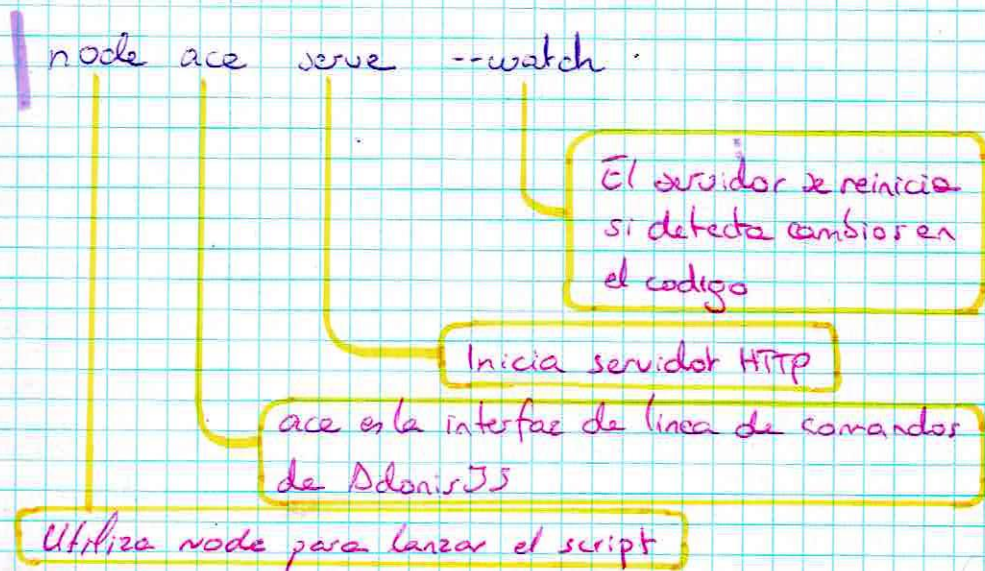 node ace serve --watch
El servidor se reinicia
si detecta cambios en
el codigo
Inicia servidor HTTP
ace es la interfaz de linea de comandos
de AdonisJS
Utiliza node para lanzar el script